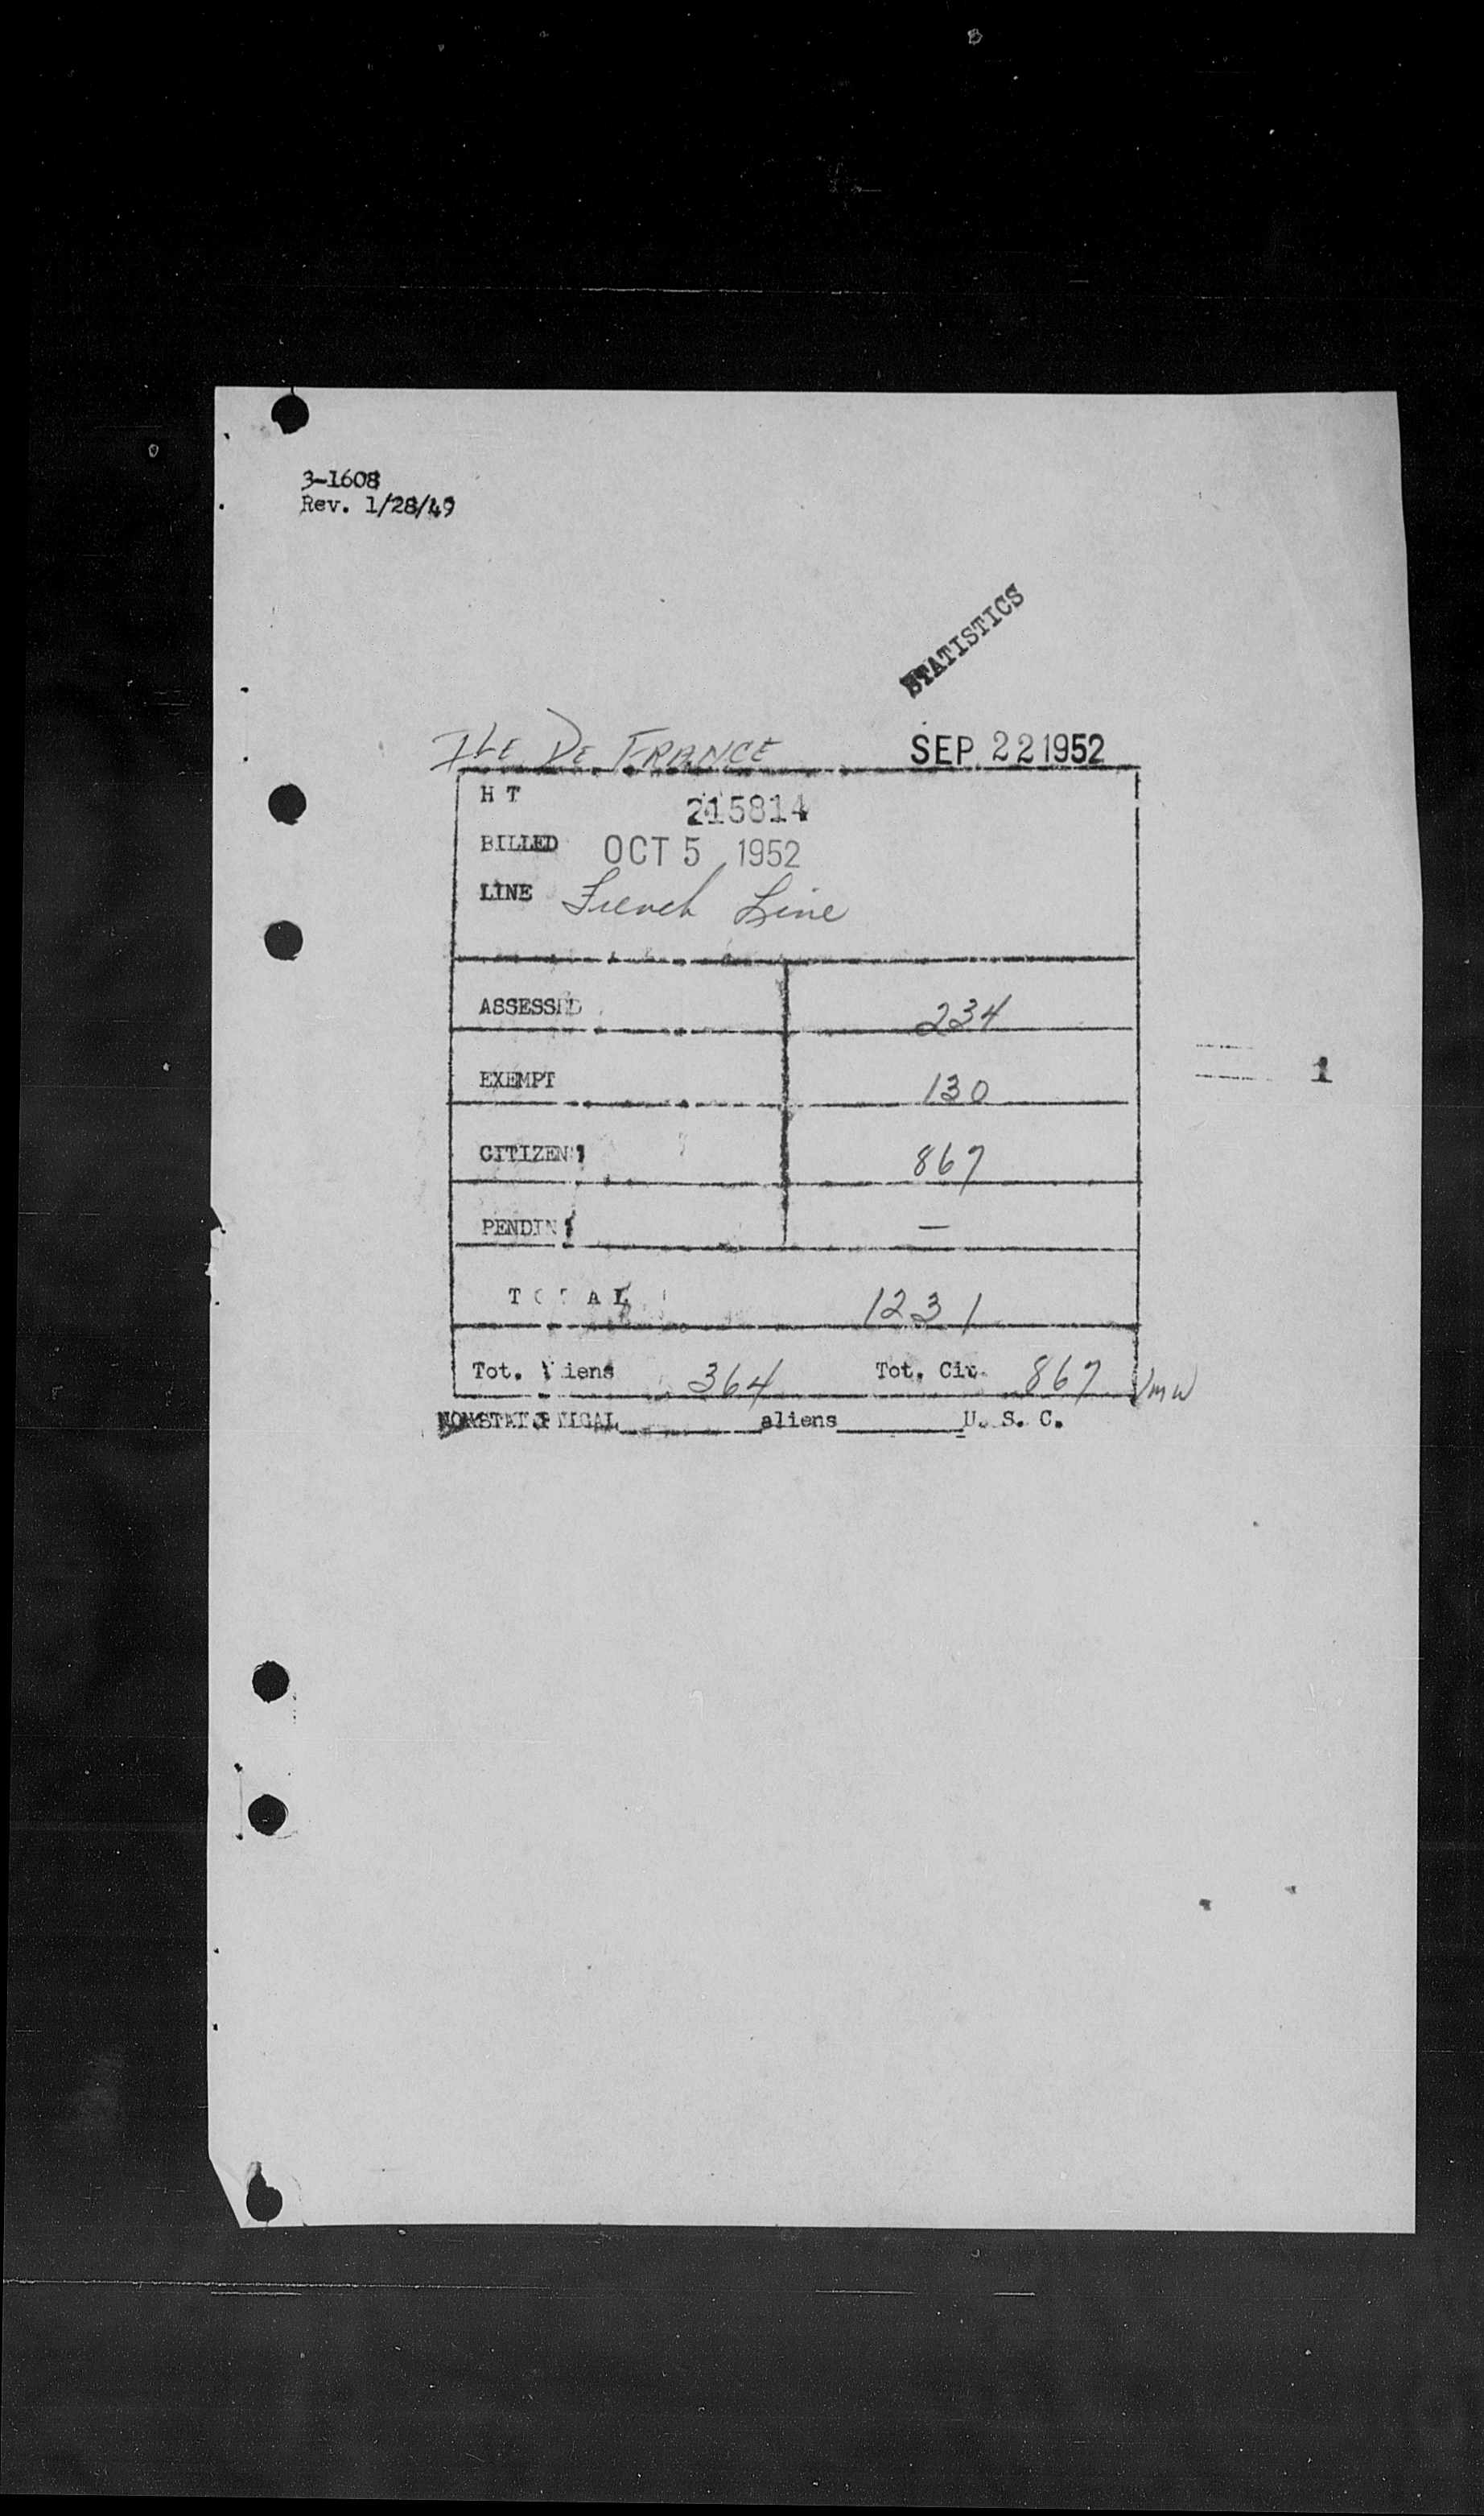 3-1608
Rev. 1/28/49
STATISTICS
ILE DE FRANCE SEP 22 1952
H T 215814
BILLED OCT 5 1952
LINE French Line
ASSESSED 234
EXEMPT 130
1
CITIZENS 867
PENDING —
TOTAL 1231
Tot. Aliens 364 Tot. Cit. 867 VMW
NONSTATISTICAL aliens U. S. C.